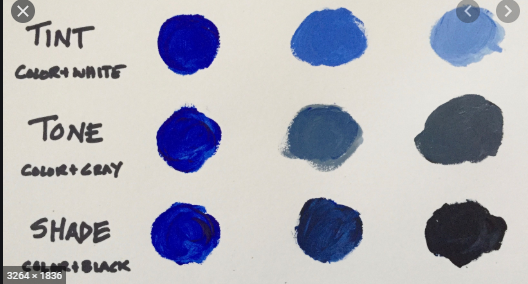 TINT
COLOR+WHITE
TONE
COLOR+GRAY
SHADE
COLOR+BLACK
3264 × 1836